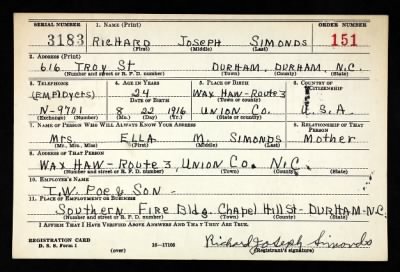 SERIAL NUMBER 1. NAME (Print) ORDER NUMBER
3183 RICHARD JOSEPH SIMONDS 151
(First) (Middle) (Last)
2. ADDRESS (Print)
616 TROY ST DURHAM, DURHAM, N.C.
(Number and street or R. F. D. number) (Town) (County) (State)
3. TELEPHONE 4. AGE IN YEARS 5. PLACE OF BIRTH 6. COUNTRY OF CITIZENSHIP
(EMPloyers) 24 WAX HAW-Route 3
DATE OF BIRTH (Town or county)
N-9701 8 22 1916 UNION CO. U.S.A.
(Exchange) (Number) (Mo.) (Day) (Yr.) (State or country)
7. NAME OF PERSON WHO WILL ALWAYS KNOW YOUR ADDRESS 8. RELATIONSHIP OF THAT PERSON
Mrs ELLA M. SIMONDS Mother
(Mr., Mrs., Miss) (First) (Middle) (Last)
9. ADDRESS OF THAT PERSON
WAX HAW-Route 3, UNION Co. N.C.
(Number and street or R. F. D. number) (Town) (County) (State)
10. EMPLOYER'S NAME
T.W. POE & SON -
11. PLACE OF EMPLOYMENT OR BUSINESS
Southern Fire Bldg. Chapel Hill St- DURHAM-N.C.
(Number and street or R. F. D. number) (Town) (County) (State)
I AFFIRM THAT I HAVE VERIFIED ABOVE ANSWERS AND THAT THEY ARE TRUE.
REGISTRATION CARD Richard Joseph Simonds
D. S. S. Form 1 (over) 16-17105 (Registrant's signature)